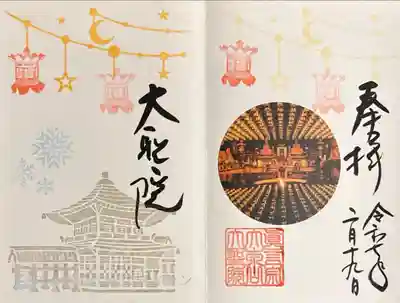 奉拝
令和七年
二月十九日
真言宗
大本山
大聖院
大聖院